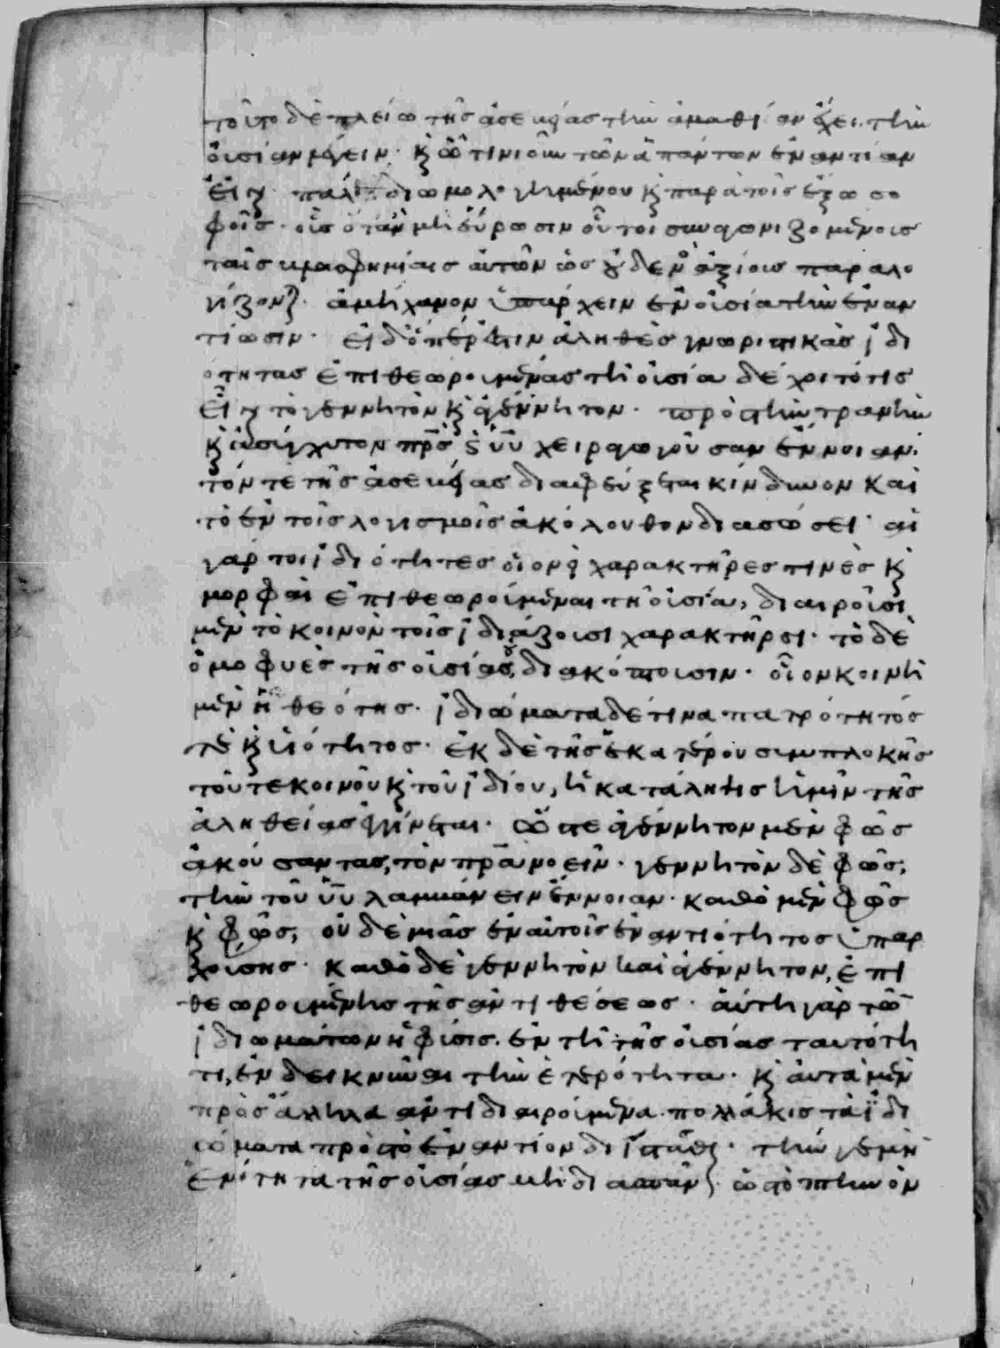 τοῦτο δὲ πλείω τῆς ἀσεβείας τὴν ἀμαθίαν ἔχει. τὴν
οὐσίαν λέγειν· κ̀ ᾧτινιοῦν τῶν ἁπάντων ἐναντίαν
εἶναι πάλαι διωμολογημένου κ̀ παρὰ τοῖς ἔξω σο
φοῖς· οἷς ὅταν μὴ εὕρωσιν οὗτοι συναγωνιζομένοις
ταῖς βλασφημίαις αὐτῶν ὡς οὐδενὸς ἀξίοις παραλο
γίζονται· ἀμήχανον ὑπάρχειν ἐν οὐσία τὴν ἐναν
τίωσιν· εἰ δ' ὅπερ ἐστιν ἀληθὲς γνωριστικὰς ἰδι
ότητας ἐπιθεωρουμένας τῆ οὐσία δέχοιτό τις
εἶναι τὸ γεννητὸν κ̀ ἀγέννητον· πρὸς τὴν τρανὴν
κ̀ ἀσύγχυτον πρ̅ς κ̀ υ̅υ χειραγωγούσαν ἔννοιαν·
τόν τε τῆς ἀσεβείας διαφεύξεται κίνδυνον καὶ
τὸ ἐν τοῖς λογισμοῖς ἀκόλουθον διασώσει· αἱ
γάρ τοι ἰδιότητες οἱονεὶ χαρακτῆρές τινὲς κ̀
μορφαὶ ἐπιθεωρούμεναι τῆ οὐσία, διαιροῦσι
μὲν τὸ κοινὸν τοῖς ἰδιάζουσι χαρακτῆρσι· τὸ δὲ
ὁμοφυὲς τῆς οὐσίας οὐ διακόπτουσιν· οἷον κοινὴ
μὲν ἡ θεότης· ἰδιώματα δέ τινα πατρότης
τε κ̀ υἱότητος· ἐκ δὲ τῆς ἑκατέρου συμπλοκῆς
τοῦ τε κοινοῦ κ̀ τοῦ ἰδίου, ἡ κατάληψις ἡμῖν τῆς
ἀληθείας ἐγγίνεται· ὥστε ἀγέννητον μὲν φῶς
ἀκούσαντας, τὸν πρ̅α νοεῖν· γεννητὸν δὲ φῶς,
τὴν τοῦ υ̅υ λαμβάνειν ἔννοιαν· καθὸ μὲν φῶς
κ̀ φῶς, οὐδεμιᾶς ἐν αὐτοῖς ἐναντιότητος ὑπαρ
χούσης· καθὸ δὲ γεννητὸν καὶ ἀγέννητον, ἐπι
θεωρουμένης τῆς ἀντιθέσεως· αὕτη γὰρ τῶν
ἰδιωμάτων ἡ φύσις. ἐν τῆ τῆς οὐσίας ταυτότη
τι, ἐνδεικνύναι τὴν ἑτερότητα· κ̀ αὐτὰ μὲν
πρὸς ἄλληλα ἀντιδιαιρούμενα πολλάκις τὰ ἰδι
ώματα πρὸς τὸ ἐναντίον διΐστασθαι· τήν γε μὴν
ἑνότητα τῆς οὐσίας μὴ διασπᾶν· ὡς τὸ πτηνὸν